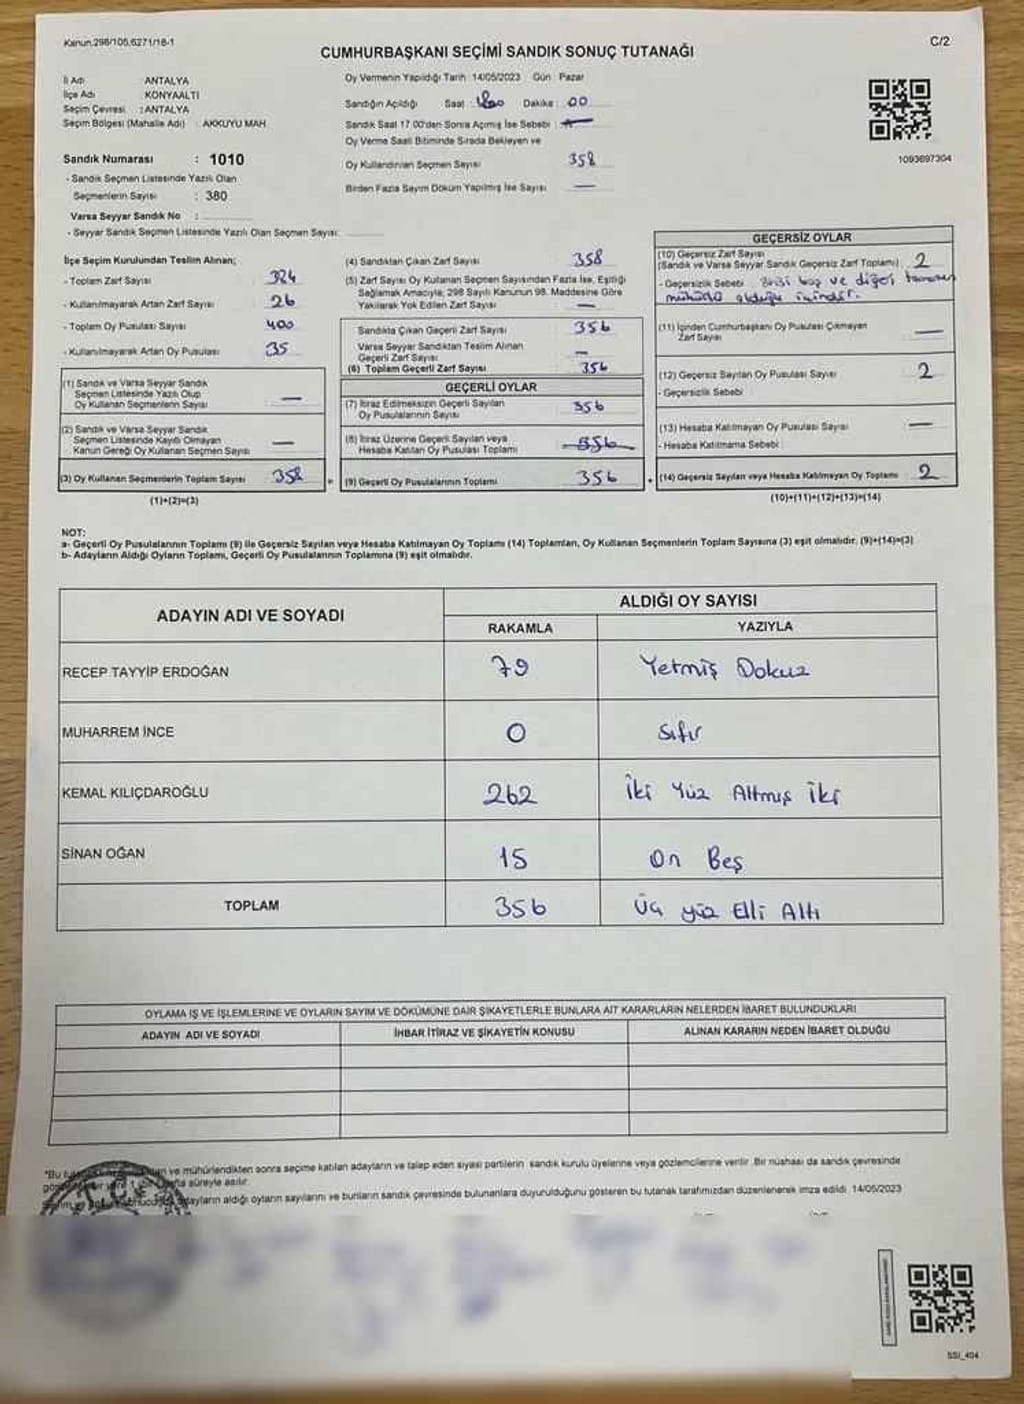 Kanun:298/105,6271/18-1
C/2
CUMHURBAŞKANI SEÇİMİ SANDIK SONUÇ TUTANAĞI
İl Adı ANTALYA
İlçe Adı KONYAALTI
Seçim Çevresi : ANTALYA
Seçim Bölgesi (Mahalle Adı) : AKKUYU MAH.
Sandık Numarası : 1010
- Sandık Seçmen Listesinde Yazılı Olan
Seçmenlerin Sayısı : 380
Varsa Seyyar Sandık No :
- Seyyar Sandık Seçmen Listesinde Yazılı Olan Seçmen Sayısı:
Oy Vermenin Yapıldığı Tarih :14/05/2023 Gün : Pazar
Sandığın Açıldığı Saat : Dakika : 00
Sandık Saat 17.00'den Sonra Açılmış İse Sebebi :
Oy Verme Saati Bitiminde Sırada Bekleyen ve
Oy Kullandırılan Seçmen Sayısı 358
Birden Fazla Sayım Döküm Yapılmış İse Sayısı —
1093697304
İlçe Seçim Kurulundan Teslim Alınan;
- Toplam Zarf Sayısı 324
- Kullanılmayarak Artan Zarf Sayısı 26
- Toplam Oy Pusulası Sayısı 400
- Kullanılmayarak Artan Oy Pusulası 35
(1) Sandık ve Varsa Seyyar Sandık
Seçmen Listesinde Yazılı Olup
Oy Kullanan Seçmenlerin Sayısı —
(2) Sandık ve Varsa Seyyar Sandık
Seçmen Listesinde Kayıtlı Olmayan
Kanun Gereği Oy Kullanan Seçmen Sayısı —
(3) Oy Kullanan Seçmenlerin Toplam Sayısı 358
(1)+(2)=(3)
(4) Sandıktan Çıkan Zarf Sayısı 358
(5) Zarf Sayısı Oy Kullanan Seçmen Sayısından Fazla İse, Eşitliği
Sağlamak Amacıyla, 298 Sayılı Kanunun 98. Maddesine Göre
Yakılarak Yok Edilen Zarf Sayısı —
Sandıkta Çıkan Geçerli Zarf Sayısı 356
Varsa Seyyar Sandıktan Teslim Alınan
Geçerli Zarf Sayısı —
(6) Toplam Geçerli Zarf Sayısı 356
GEÇERLİ OYLAR
(7) İtiraz Edilmeksizin Geçerli Sayılan
Oy Pusulalarının Sayısı 356
(8) İtiraz Üzerine Geçerli Sayılan veya
Hesaba Katılan Oy Pusulası Toplamı 356
(9) Geçerli Oy Pusulalarının Toplamı 356
GEÇERSİZ OYLAR
(10) Geçersiz Zarf Sayısı
(Sandık ve Varsa Seyyar Sandık Geçersiz Zarf Toplamı) 2
- Geçersizlik Sebebi Birisi boş ve diğeri tamamen
mühürlü olduğu içindir.
(11) İçinden Cumhurbaşkanı Oy Pusulası Çıkmayan
Zarf Sayısı —
(12) Geçersiz Sayılan Oy Pusulası Sayısı 2
- Geçersizlik Sebebi
(13) Hesaba Katılmayan Oy Pusulası Sayısı —
- Hesaba Katılmama Sebebi
(14) Geçersiz Sayılan veya Hesaba Katılmayan Oy Toplamı 2
(10)+(11)+(12)+(13)=(14)
NOT:
a- Geçerli Oy Pusulalarının Toplamı (9) ile Geçersiz Sayılan veya Hesaba Katılmayan Oy Toplamı (14) Toplamları, Oy Kullanan Seçmenlerin Toplam Sayısına (3) eşit olmalıdır. (9)+(14)=(3)
b- Adayların Aldığı Oyların Toplamı, Geçerli Oy Pusulalarının Toplamına (9) eşit olmalıdır.
ADAYIN ADI VE SOYADI
ALDIĞI OY SAYISI
RAKAMLA YAZIYLA
RECEP TAYYİP ERDOĞAN 79 Yetmiş Dokuz
MUHARREM İNCE 0 Sıfır
KEMAL KILIÇDAROĞLU 262 İki Yüz Altmış İki
SİNAN OĞAN 15 On Beş
TOPLAM 356 Üç yüz Elli Altı
OYLAMA İŞ VE İŞLEMLERİNE VE OYLARIN SAYIM VE DÖKÜMÜNE DAİR ŞİKAYETLERLE BUNLARA AİT KARARLARIN NELERDEN İBARET BULUNDUKLARI
ADAYIN ADI VE SOYADI İHBAR İTİRAZ VE ŞİKAYETİN KONUSU ALINAN KARARIN NEDEN İBARET OLDUĞU
*Bu ve mühürlendikten sonra seçime katılan adayların ve talep eden siyasi partilerin sandık kurulu üyelerine veya gözlemcilerine verilir. Bir nüshası da sandık çevresinde
süreyle asılır.
adayların aldığı oyların sayılarını ve bunların sandık çevresinde bulunanlara duyurulduğunu gösteren bu tutanak tarafımızdan düzenlenerek imza edildi. 14/05/2023
SSI_404